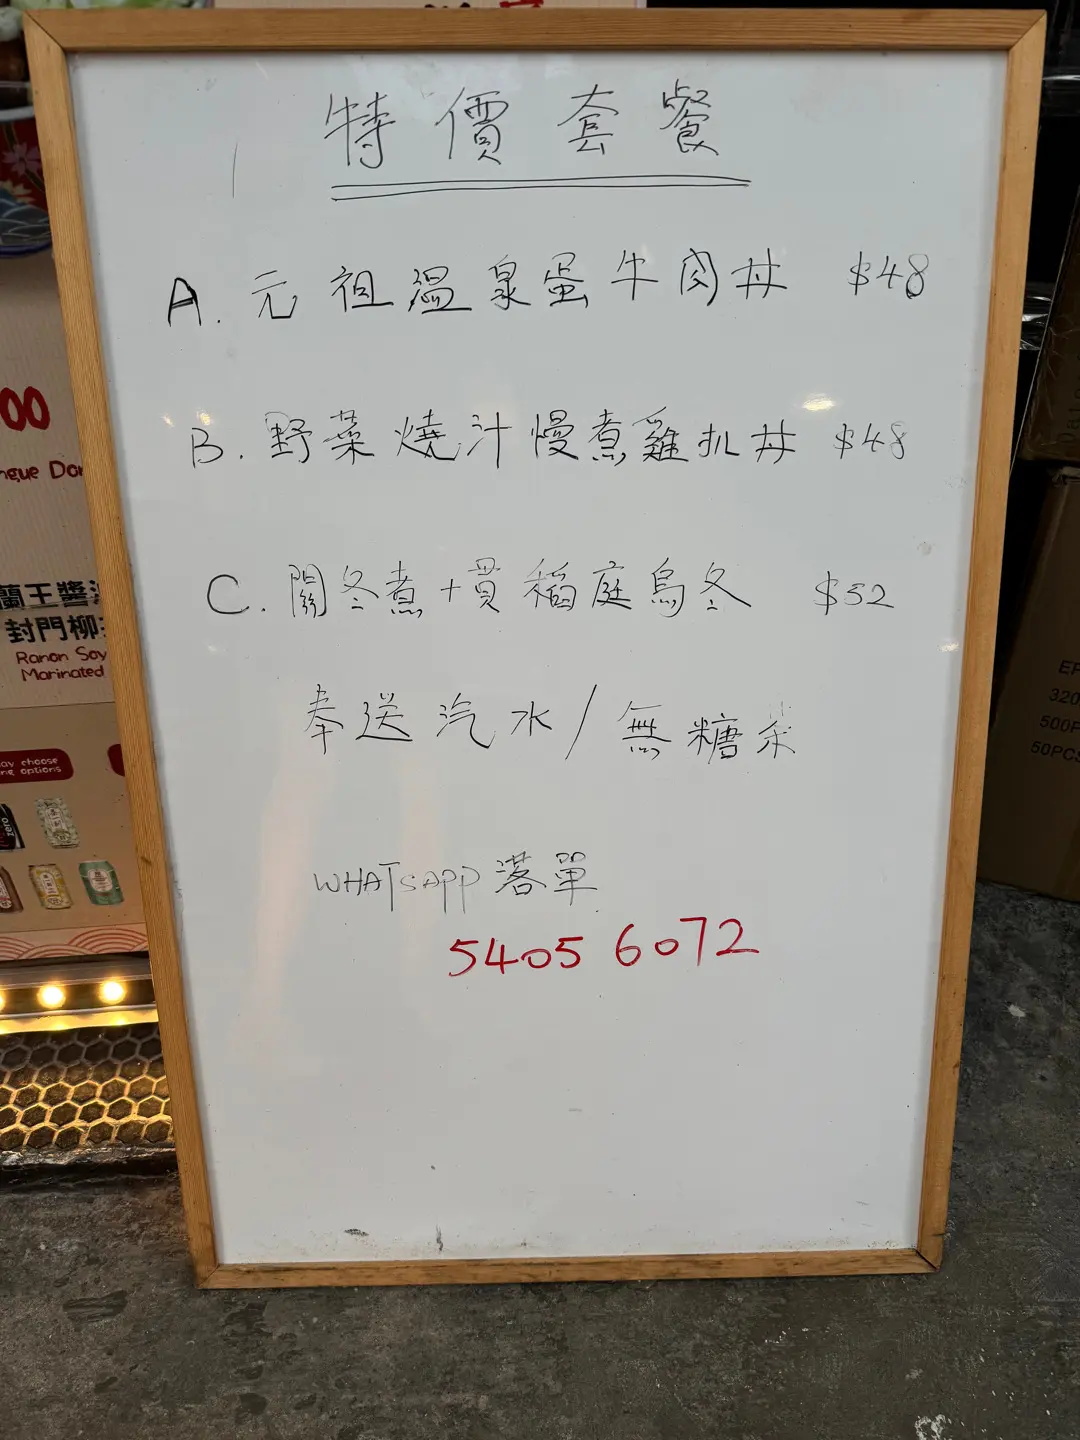 特價套餐
A. 元祖温泉蛋牛肉丼 $48
B. 野菜燒汁慢煮雞扒丼 $48
C. 關冬煮+貫稻庭烏冬 $52
奉送汽水/無糖茶
WHATSAPP 落單
5405 6072
00
ngue Don
蘭王醬油
封門柳
Ranon Soy
Marinated
ay choose
ng options
zero
EP
320
500P
50PCS